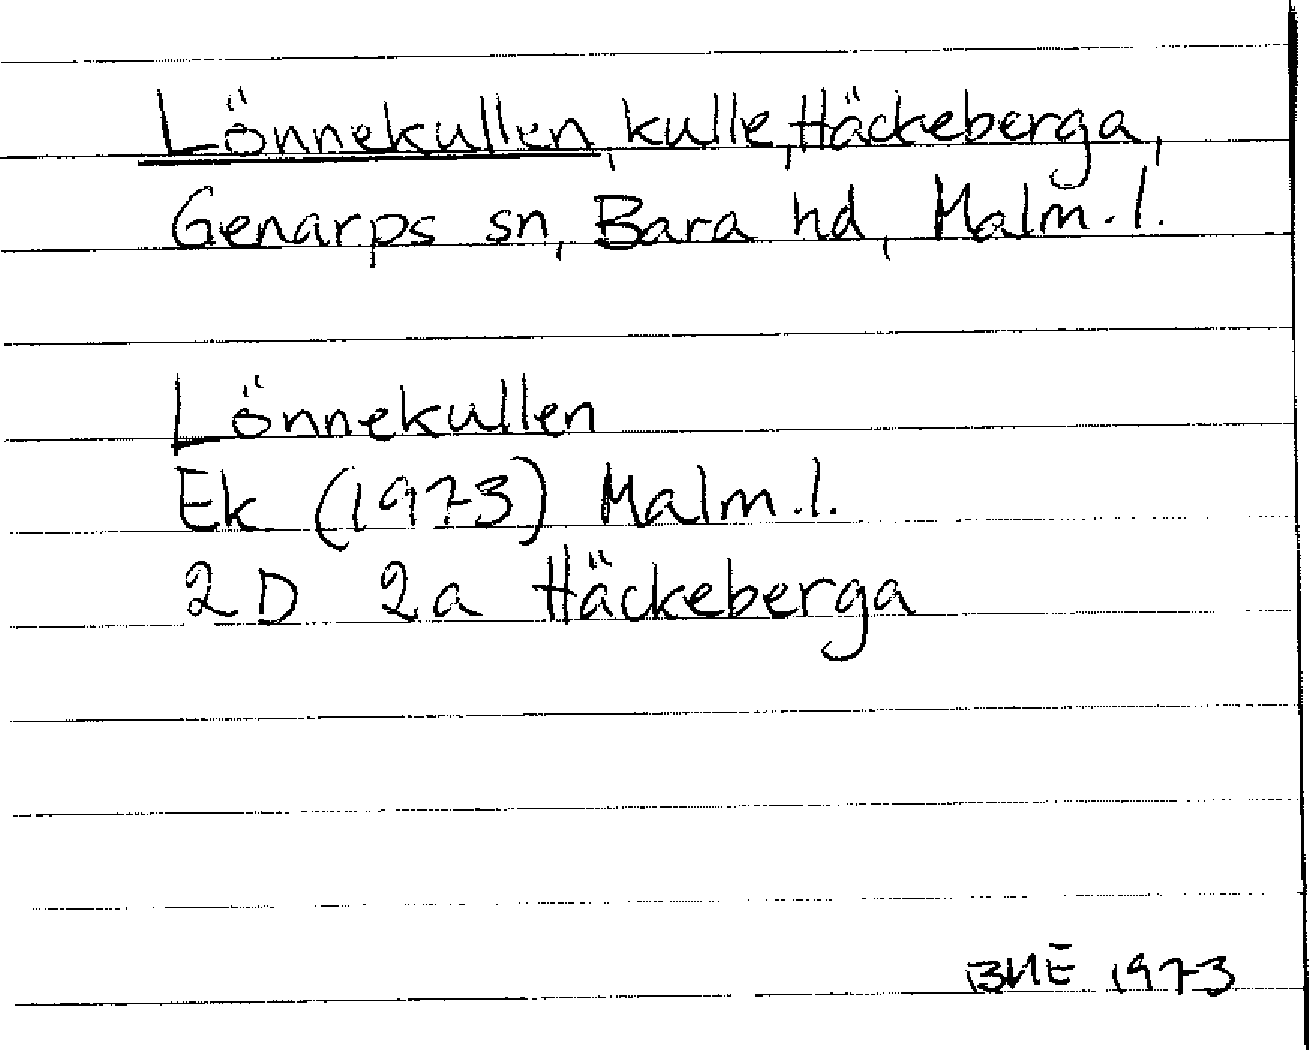 Lönnekullen, kulle, Häckeberga,
Genarps sn, Bara hd, Malm. l.
Lönnekullen
Ek (1973) Malm. l.
2D 2a Häckeberga
BME 1973